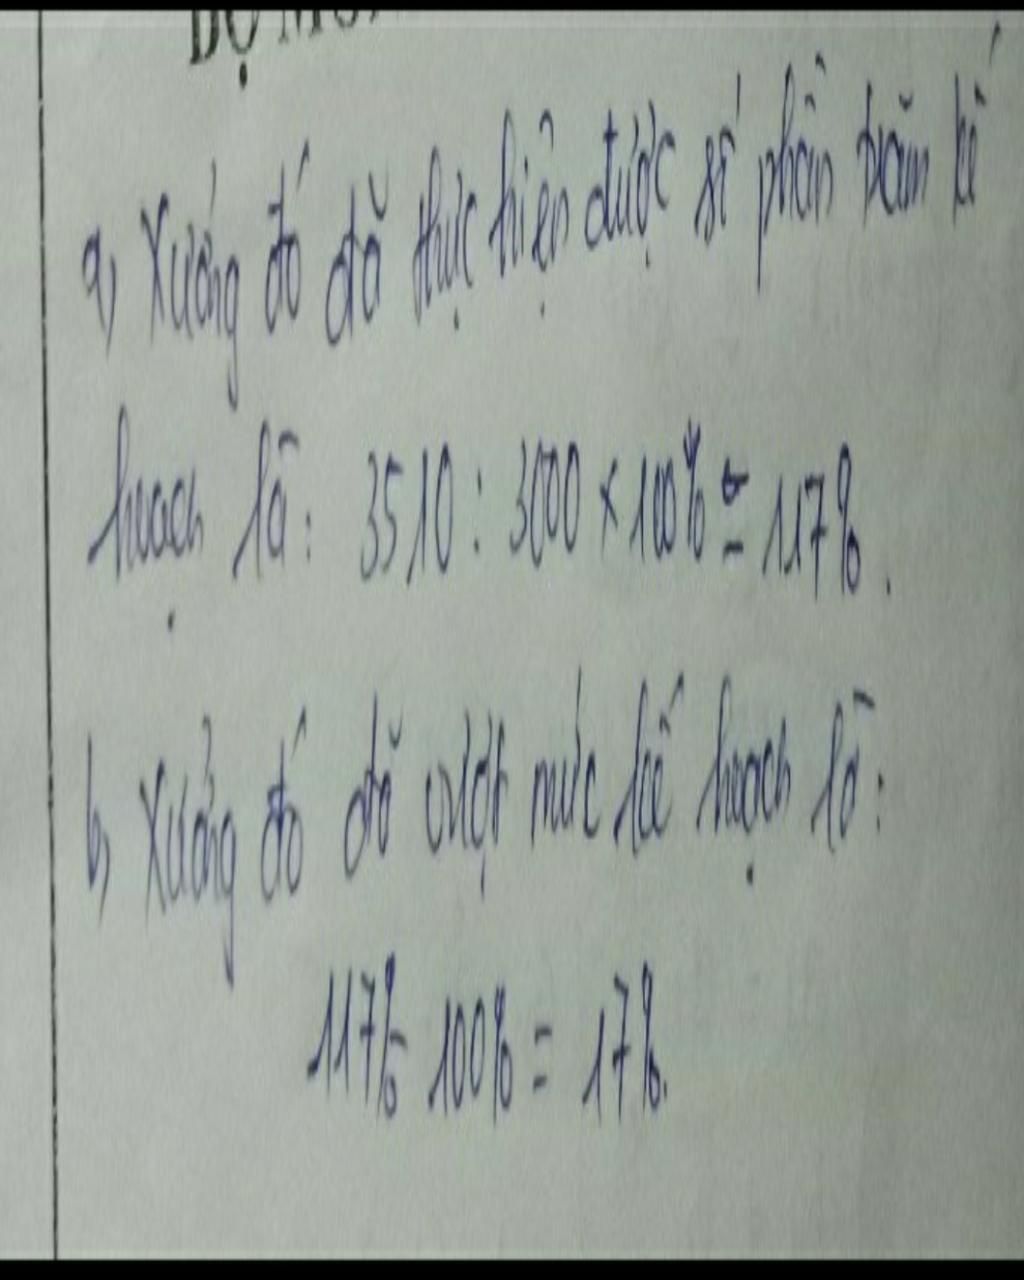 BỘ
a, Xưởng đó đã thực hiện được số phần trăm kế
hoạch là: 3510 : 3000 × 100% = 117%.
b, Xưởng đó đã vượt mức kế hoạch là:
117% - 100% = 17%.